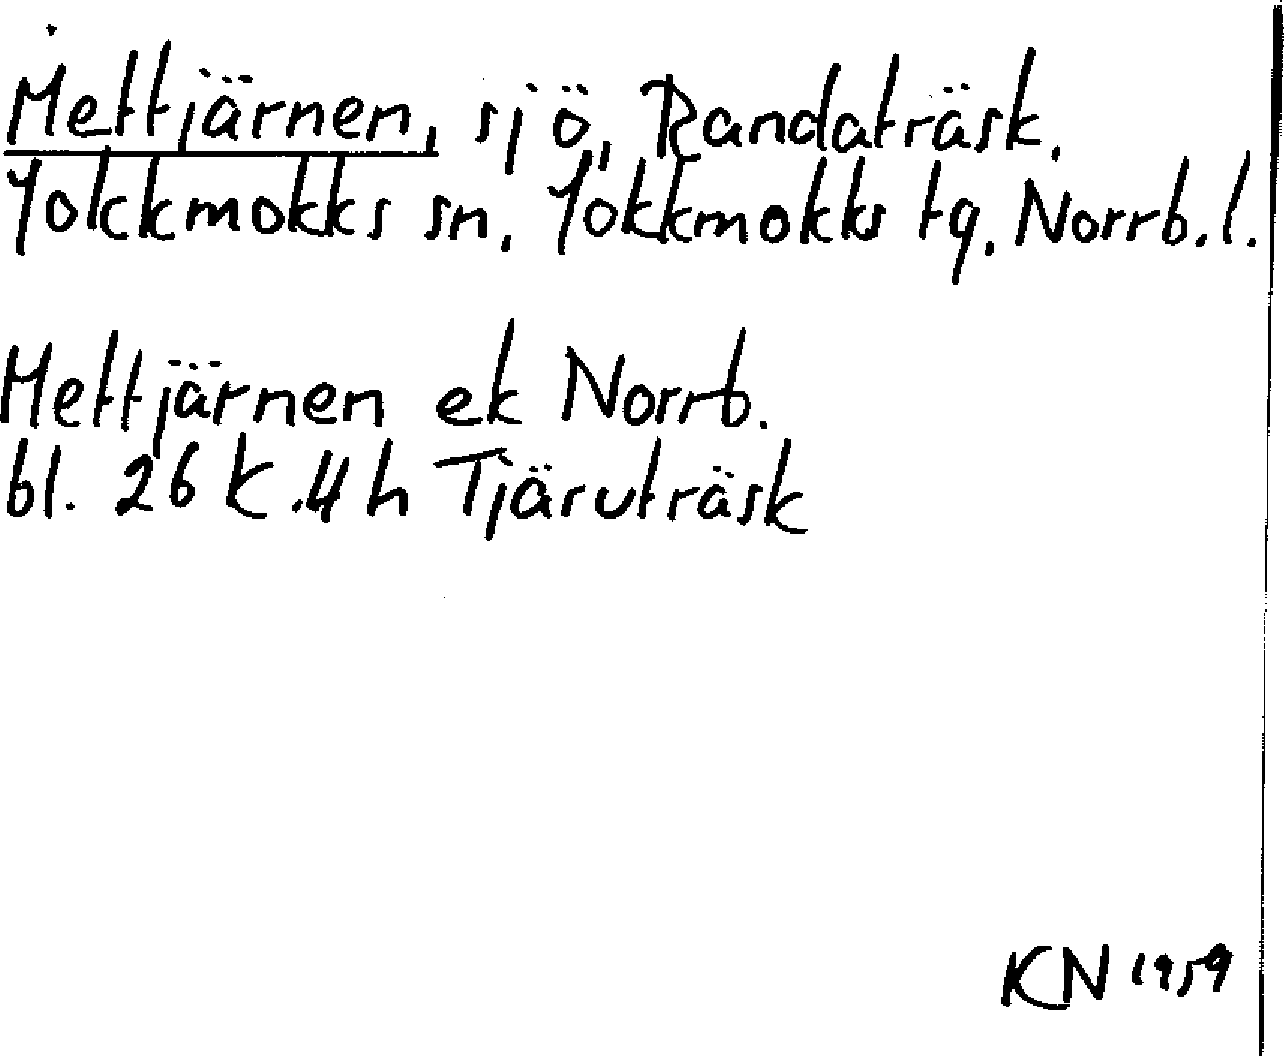 Mettjärnen, sjö, Randaträsk.
Jokkmokks sn. Jokkmokks tg. Norrb. l.
Mettjärnen ek Norrb.
bl. 26 K. 4 h Tjäruträsk
KN 1959